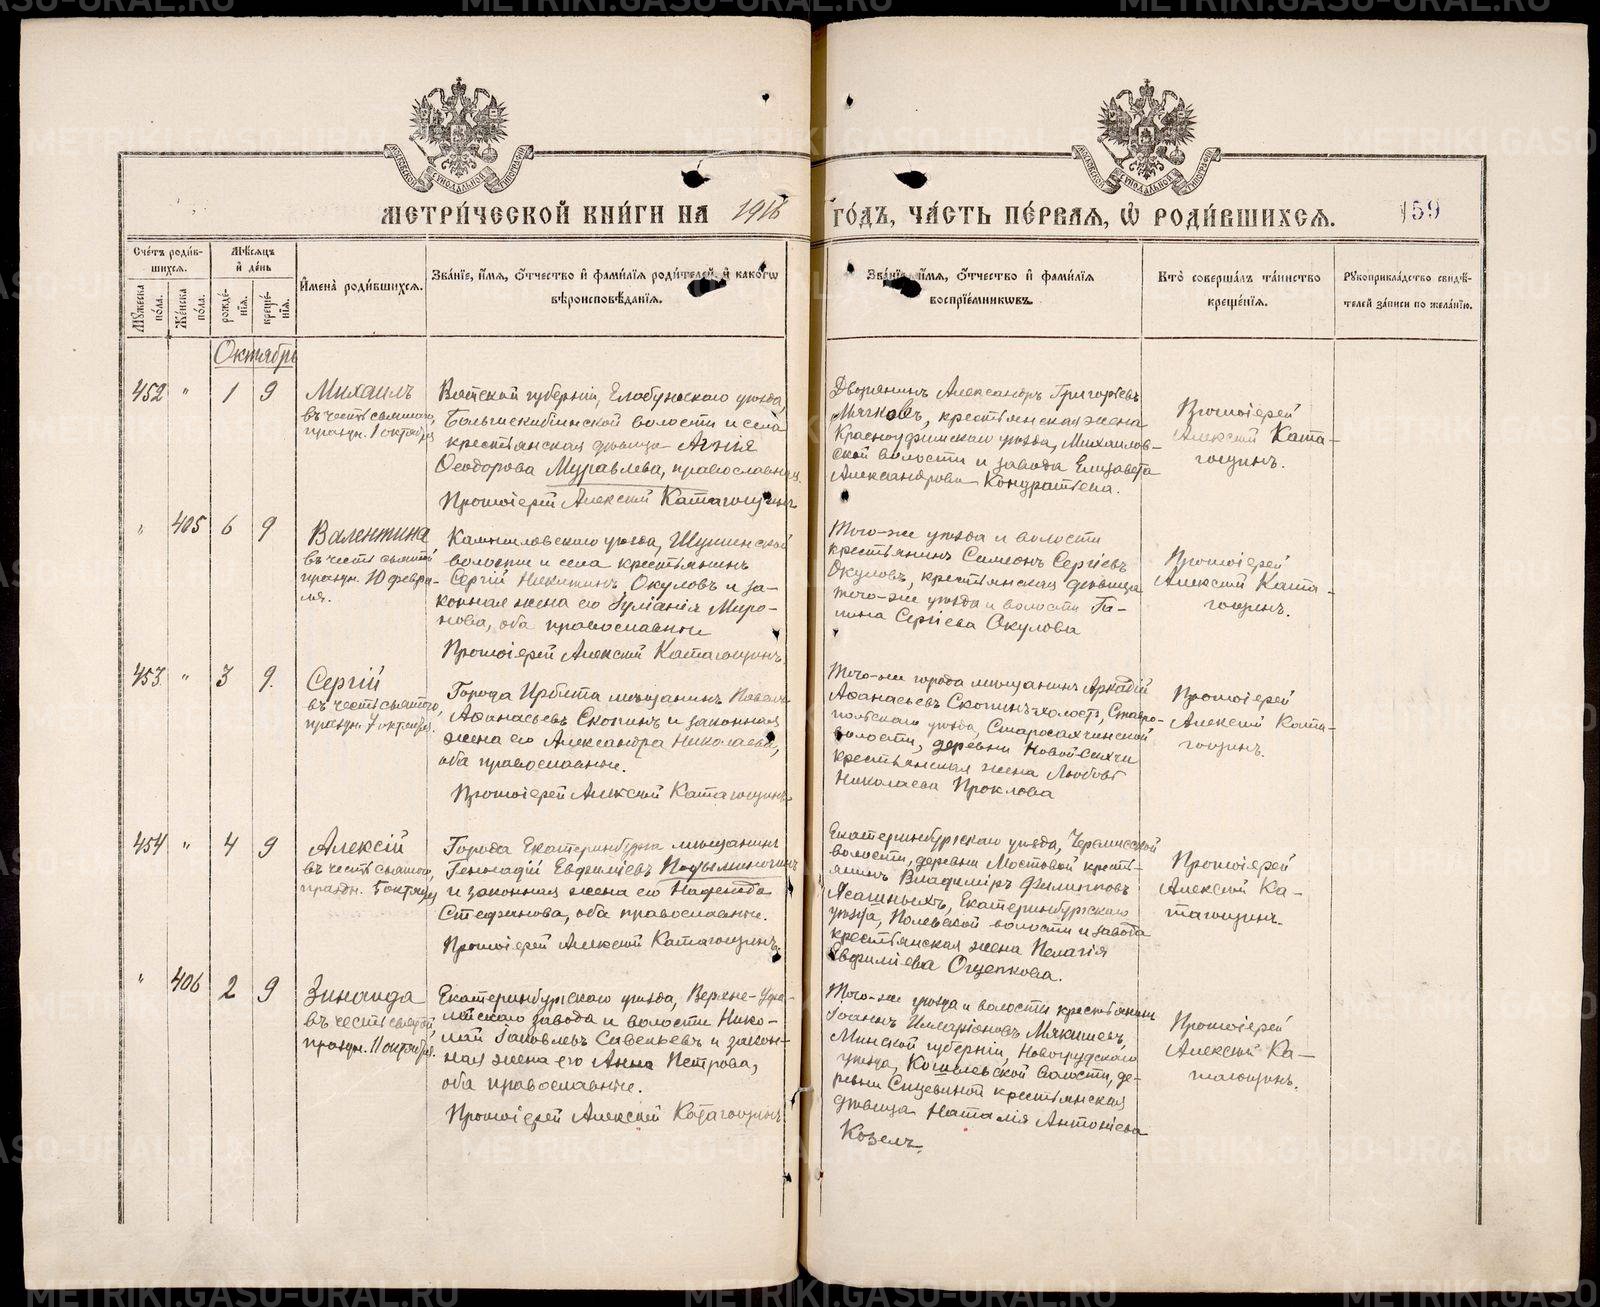 МЕТРИ́ЧЕСКОЙ КНИ́ГИ НА 1916 ГО́ДЪ, ЧА́СТЬ ПЕ́РВАЯ, Ѡ҆ РОДИ́ВШИХСЯ.
159
Сче́тъ роди́в-
шихся.
Мѣ́сяцъ
и҆ де́нь
Му́жеска по́ла.
Же́нска по́ла.
рожде́нїя.
креще́нїя.
И҆мена̀ роди́вшихся.
Зва́нїе, и҆́мя, ѻ҆́тчество и҆ фами́лїя роди́телей, и҆ како́гѡ
вѣроисповѣ́данїя.
Зва́нїе, и҆́мя, ѻ҆́тчество и҆ фами́лїя
воспрїе́мникѡвъ.
Кто̀ соверша́лъ та́инство
креще́нїя.
Рукоприкла́дство свидѣ́-
телей за́писи по жела́нїю.
Октябрь
452 " 1 9
Михаилъ
въ честь святого,
праздн. 1 октября
Вятской губерніи, Елабужского уезда,
волости и села
крестьянская девица Агнія
Феодорова Муравлева, православная.
Протоіерей Алексий Катагощинъ
Дворянинъ Александръ Григорьевъ
Мячковъ, крестьянская жена
Красноуфимского уезда, Михайлов-
ской волости и завода Елизавета
Александрова Кондратьева.
Протоіерей
Алексий Ката-
гощинъ.
" 405 6 9
Валентина
въ честь святой
праздн. 10 февра-
ля.
Камышловского уезда,
волости и села крестьянинъ
Сергій Никитинъ Окуловъ и за-
конная жена его Іуліанія Миро-
нова, оба православные
Протоіерей Алексий Катагощинъ.
Того-же уезда и волости
крестьянинъ Симеонъ Сергіевъ
Окуловъ, крестьянская девица
того-же уезда и волости Га-
лина Сергіева Окулова
Протоіерей
Алексий Ката-
гощинъ.
453 " 3 9.
Сергій
въ честь святого,
праздн. 7 октября.
Города Ирбита мещанинъ Павелъ
Афанасьевъ Скопинъ и законная
жена его Александра Николаева,
оба православные.
Протоіерей Алексий Катагощинъ
Того-же города мещанинъ Аркадій
Афанасьевъ Скопинъ-холостъ, Ставро-
польского уезда,
волости, деревни
крестьянская жена Любовь
Николаева Проклова
Протоіерей
Алексий Ката-
гощинъ.
454 " 4 9
Алексій
въ честь святого,
праздн. 5 октября
Города Екатеринбурга мещанинъ
Геннадій Евфиміевъ Подыминогинъ
и законная жена его Надежда
Стефанова, оба православные.
Протоіерей Алексий Катагощинъ.
Екатеринбургского уезда, Черемисской
волости, деревни Мостовой кресть-
янинъ Владиміръ Филипповъ
Ясашныхъ, Екатеринбургского
уезда, Полевской волости и завода
крестьянская жена Пелагія
Евфиміева Ощепкова.
Протоіерей
Алексий Ка-
тагощинъ.
" 406 2 9
Зинаида
въ честь святой
праздн. 11 октября.
Екатеринбургского уезда, Верхне-Уфа-
лейского завода и волости Нико-
лай Іаковлевъ Савельевъ и закон-
ная жена его Анна Петрова,
оба православные.
Протоіерей Алексий Катагощинъ.
Того-же уезда и волости крестьянинъ
Іоаннъ Иларіоновъ Мякишевъ,
Минской губерніи, Новогрудского
уезда, Кошелевской волости, де-
ревни крестьянская
девица Наталія Антоніева
Козелъ.
Протоіерей
Алексий Ка-
тагощинъ.
METRIKI.GASO-URAL.RU